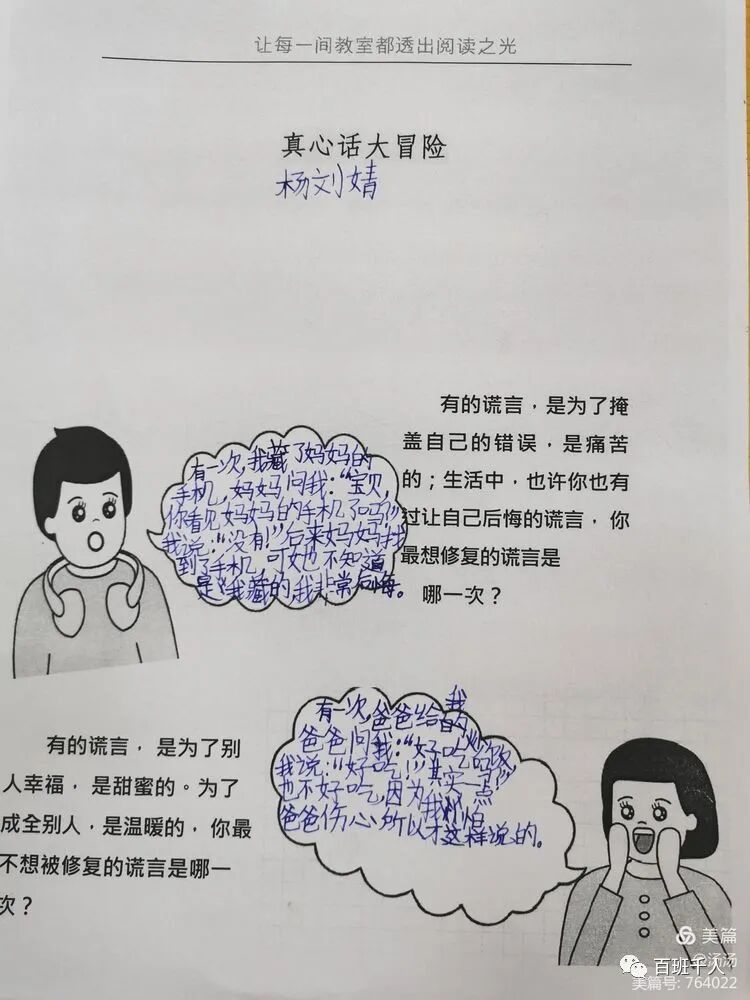 让每一间教室都透出阅读之光
真心话大冒险
杨刘婧
有的谎言，是为了掩
盖自己的错误，是痛苦
的；生活中，也许你也有
过让自己后悔的谎言，你
最想修复的谎言是
哪一次？
有一次,我藏了妈妈的
手机,妈妈问我:“宝贝,
你看见妈妈的手机了吗?”
我说:“没有!”后来妈妈找
到了手机,可她也不知道
是我藏的,我非常后悔。
有的谎言，是为了别
人幸福，是甜蜜的。为了
成全别人，是温暖的，你最
不想被修复的谎言是哪一
次？
有一次,爸爸给我
爸爸问我:“好吃吗?”
我说:“好吃!”其实一点
也不好吃,因为我怕
爸爸伤心所以才这样说的。
美篇
@汤汤
百班千人
美篇号: 764022